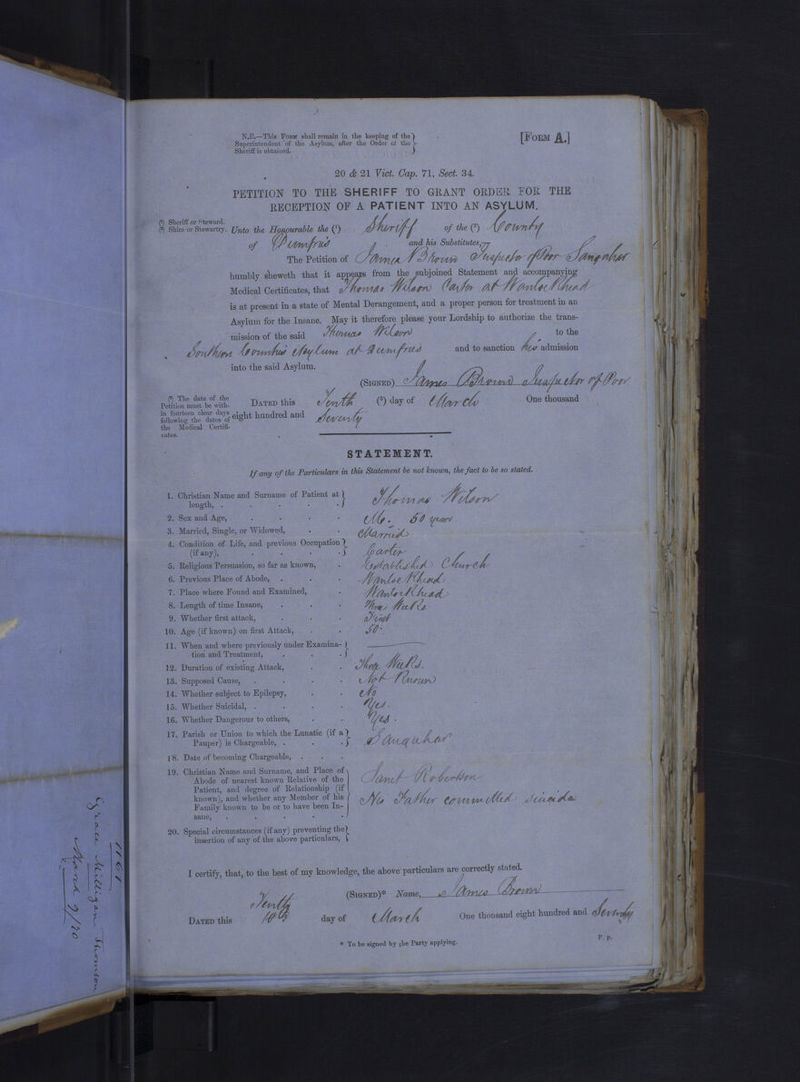 N.B.—This Form shall remain in the keeping of the
Superintendent of the Asylum, after the Order of the
Sheriff is obtained.
[FORM A.]
20 & 21 Vict. Cap. 71, Sect. 34.
PETITION TO THE SHERIFF TO GRANT ORDER FOR THE
RECEPTION OF A PATIENT INTO AN ASYLUM.
(¹) Sheriff or Steward.
(²) Shire or Stewartry.
Unto the Honourable the (¹) Sheriff of the (²) County
of Dumfries and his Substitutes,
The Petition of James Brown Inspector of Poor Sanquhar
humbly sheweth that it appears from the subjoined Statement and accompanying
Medical Certificates, that Thomas Wilson Carter at Wanlockhead
is at present in a state of Mental Derangement, and a proper person for treatment in an
Asylum for the Insane. May it therefore please your Lordship to authorize the trans-
mission of the said Thomas Wilson to the
Southern Counties Asylum at Dumfries and to sanction his admission
into the said Asylum.
(SIGNED) James Brown Inspector of Poor
(³) The date of the
Petition must be with-
in fourteen clear days
following the dates of
the Medical Certifi-
cates.
DATED this Tenth (³) day of March One thousand
eight hundred and Seventy
STATEMENT.
If any of the Particulars in this Statement be not known, the fact to be so stated.
1. Christian Name and Surname of Patient at length, Thomas Wilson
2. Sex and Age, M. 50 years
3. Married, Single, or Widowed, Married
4. Condition of Life, and previous Occupation (if any), Carter
5. Religious Persuasion, so far as known, Established Church
6. Previous Place of Abode, Wanlockhead
7. Place where Found and Examined, Wanlockhead
8. Length of time Insane, Three Weeks
9. Whether first attack, First
10. Age (if known) on first Attack, 50
11. When and where previously under Examina-
tion and Treatment,
12. Duration of existing Attack, Three Weeks.
13. Supposed Cause, Not Known
14. Whether subject to Epilepsy, No
15. Whether Suicidal, Yes.
16. Whether Dangerous to others, Yes.
17. Parish or Union to which the Lunatic (if a
Pauper) is Chargeable, Sanquhar
18. Date of becoming Chargeable,
19. Christian Name and Surname, and Place of
Abode of nearest known Relative of the
Patient, and degree of Relationship (if
known), and whether any Member of his
Family known to be or to have been In-
sane,
Janet Robertson
His Father committed suicide
20. Special circumstances (if any) preventing the
insertion of any of the above particulars,
I certify, that, to the best of my knowledge, the above particulars are correctly stated.
(SIGNED)* Name, James Brown
Tenth
DATED this 10th day of March One thousand eight hundred and Seventy
* To be signed by the Party applying.
P. p.
1161
Grace Milligan Thomson
March 9/70